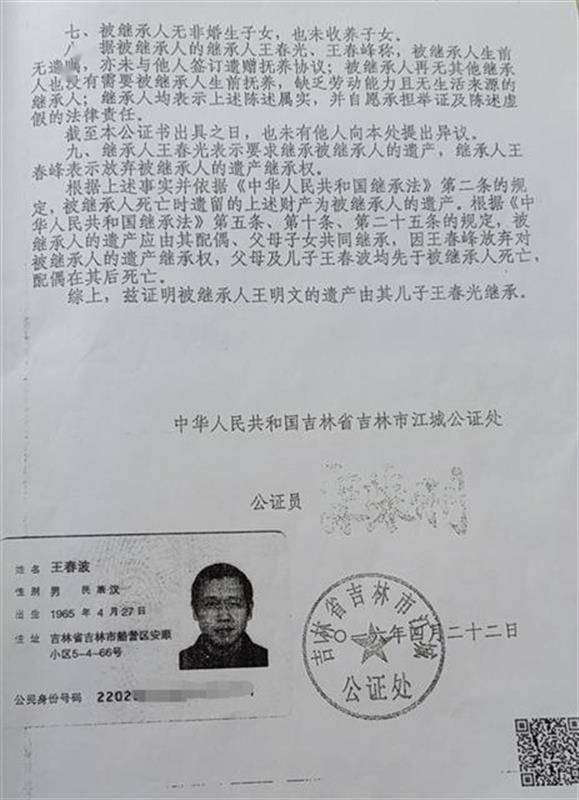 七、被继承人无非婚生子女，也未收养子女。
八、据被继承人的继承人王春光、王春峰称，被继承人生前
无遗嘱，亦未与他人签订遗赠抚养协议；被继承人再无其他继承
人也没有需要被继承人生前抚养，缺乏劳动能力且无生活来源的
继承人；继承人均表示上述陈述属实，并自愿承担举证及陈述虚
假的法律责任。
截至本公证书出具之日，也未有他人向本处提出异议。
九、继承人王春光表示要求继承被继承人的遗产，继承人王
春峰表示放弃被继承人的遗产继承权。
根据上述事实并依据《中华人民共和国继承法》第二条的规
定，被继承人死亡时遗留的上述财产为被继承人的遗产。根据《中
华人民共和国继承法》第五条、第十条、第二十五条的规定，被
继承人的遗产应由其配偶、父母子女共同继承，因王春峰放弃对
被继承人的遗产继承权，父母及儿子王春波均先于被继承人死亡，
配偶在其后死亡。
综上，兹证明被继承人王明文的遗产由其儿子王春光继承。
中华人民共和国吉林省吉林市江城公证处
公证员
姓名 王春波
性别 男 民族汉
出生 1965 年 4 月 27 日
住址 吉林省吉林市船营区安顺
小区5-4-66号
公民身份号码 2202
吉林省吉林市江城
公证处
六年四月二十二日